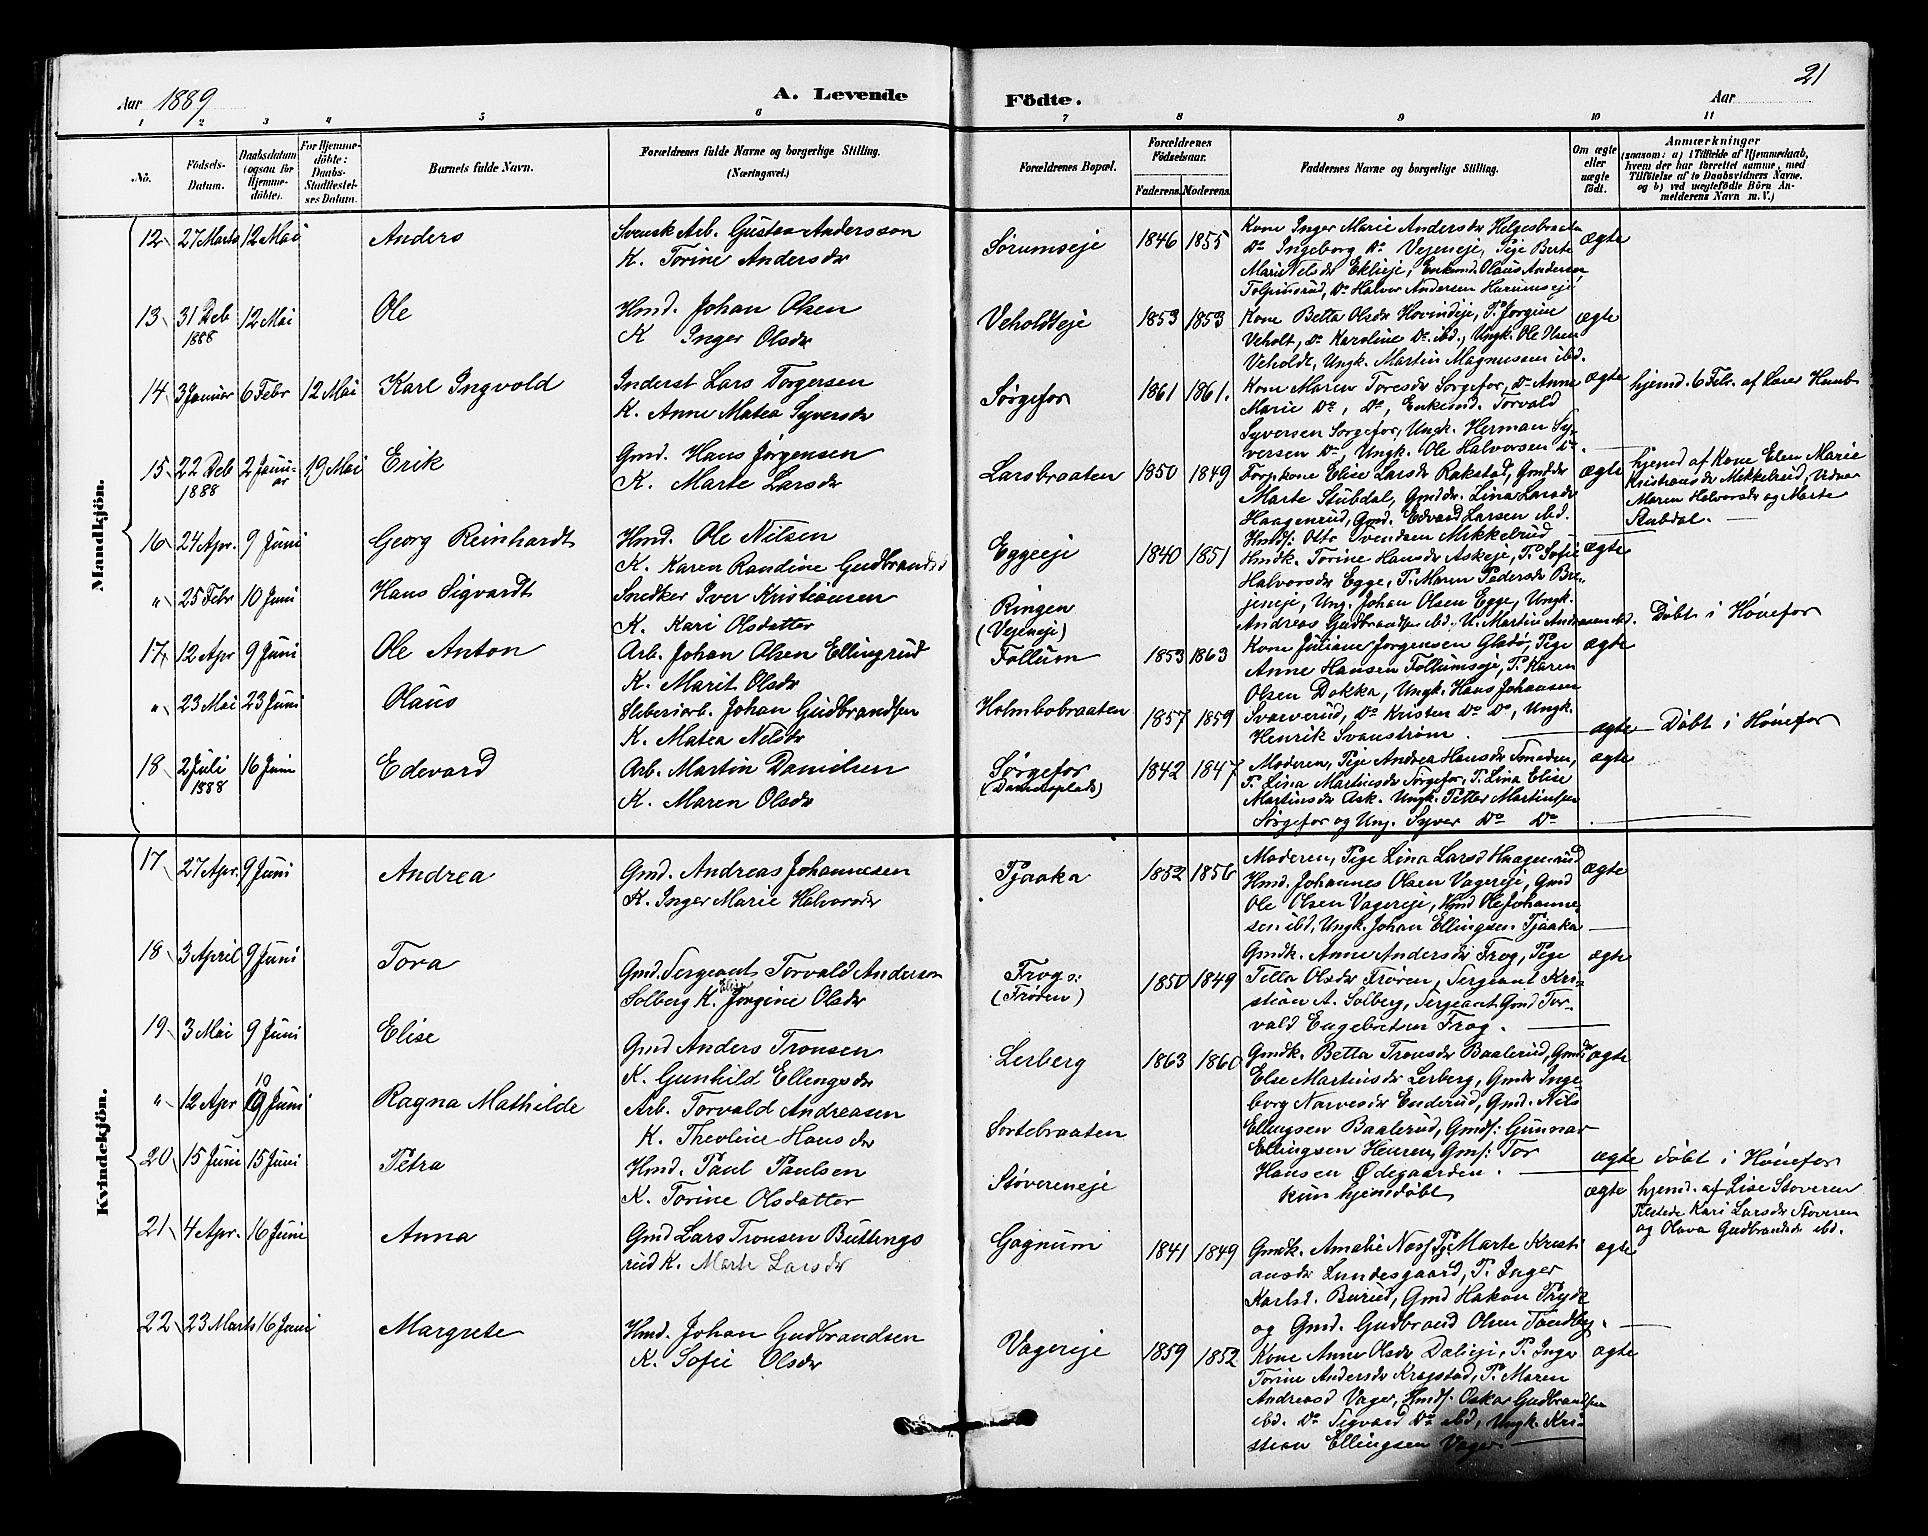 Aar 1889
A. Levende
Födte.
Aar
21
1 2 3 4 5 6 7 8 9 10 11
No.
Födsels-
Datum.
Daabsdatum
(ogsaa for
Hjemme-
döbte).
For Hjemme-
döbte:
Daabs-
Stadfæstel-
ses Datum.
Barnets fulde Navn.
Forældrenes fulde Navne og borgerlige Stilling.
(Næringsvei.)
Forældrenes Bopæl.
Forældrenes
Födselsaar.
Faderens. Moderens.
Faddernes Navne og borgerlige Stilling.
Om ægte
eller
uægte
födt.
Anmærkninger
(saasom: a) i Tilfælde af Hjemmedaab,
hvem der har forrettet samme, med
Tilföielse af to Daabsvidners Navne.
og b) ved uægtefödte Börn An-
melderens Navn m. V.)
Mandkjön.
12 27 Marts 12 Mai Anders
Svensk Arb. Gustav Andersson
K. Torine Andersdr
Sørumseje 1846 1855
Kone Inger Marie Andersdr Helgesbraaten
Do Ingeborg Do Vejeneje, Pige Berte
Marie Nelsdr Eklieje, Enkemd. Olaus Andersen
Do Halvor Andersen Harumseje
ægte
13 31 Deb 1888 12 Mai Ole
Hmd. Johan Olsen
K Inger Olsdr
Veholdteje 1853 1853
Kone Betta Olsdr Hovindeje, P. Jorgine
Veholt, Do Karoline Do ibd., Ungk. Ole
Veholde, Ungk. Martin Magnussen ibd.
ægte
14 3 Januar 6 Febr 12 Mai Karl Ingvold
Inderst Lars Torgersen
K. Anne Matea Syversdr
Sørgefos 1861 1861.
Kone Maren Toresdr Sørgefos, Do Anne
Marie Do, Do, Enkemd. Torvald
Syversen Sørgefos, Ungk. Herman Sy-
versen Do, Ungk. Ole Halvorsen Do
ægte
hjemd. 6 Feb. af Lars
15 22 Deb 1888 2 Janu-ar 19 Mai Erik
Gmd. Hans Jørgensen
K. Marte Larsdr
Larsbraaten 1850 1849
Elise Larsdr Rakstad, Gmddr
Marte Stubdal, Gmddr. Lina Larsdr
Haagenrud, Gmd. Edvard Larsen ibd.
Hmdf: Otto Svendsen Mikkelrud
ægte
hjemd af Kone Elen Marie
Kristiansdr Mikkelrud, Vidner
Maren Halvorsdr og Marte
Stubdal.
16 24 Apr. 9 Juni Georg Reinhardt
Hmd. Ole Nilsen
K. Karen Randine Gudbrandsd
Eggeeje 1840 1851
Hmdk. Torine Hansdr Askeje, P. Sofie
Halvorsdr Egge, P. Maren Pedersdr Bre-
jeneje, Ung. Johan Olsen Egge, Ungk.
Andreas Gudbrandsen ibd, U. Martin Andreasen ibd.
ægte
" 25 Febr 10 Juni Hans Sigvardt
Snedker Iver Kristiansen
K. Kari Olsdatter
Ringen
(Vejeneje)
Døbt i Hønefos
17 12 Apr 9 Juni Ole Anton
Arb. Johan Olsen Ellingrud
K. Marit Olsdr
Follum 1853 1863
Kone Juliane Jorgensen Gladø, Pige
Anne Hansen Follumseje, P. Karen
Olsen Dokka, Ungk. Hans Johansen
Svarverud, Do Kristen Do Do, Ungk.
Henrik Svanstrøm.
ægte
" 23 Mai 23 Juni Olaus
Sliberiarb. Johan Gudbrandsen
K. Matea Nilsdr
Holmbobraaten 1857 1859
ægte
Døbt i Hønefos
18 2 Juli 1888 16 Juni Edevard
Arb. Martin Danielsen
K. Maren Olsdr
Sørgefos 1842 1847
Moderen, Pige Andrea Hansdr Smeden,
P. Lina Martinsdr Sørgefos, P. Lina Elise
Martinsdr Ask. Ungk. Petter Martinsen
Sørgefos og Ung. Syver Do Do
ægte
Kvindekjön.
17 27 Apr. 9 Juni Andrea
Gmd. Andreas Johannesen
K. Inger Marie Halvorsdr
Tjaaka 1852 1856
Moderen, Pige Lina Larsd Haagenrud
Hmd. Johannes Olsen Vagereje, Gmd
Ole Olsen Vagereje, Hmd Ole Johanne-
sen ibd, Ungk. Johan Ellingsen Tjaaka
ægte
18 3 April 9 Juni Tora
Gmd. Sergeant Torvald Andersen
Solberg K. Elise Jørgine Olsdr
Frogs:
(Frøren) 1850 1849
Gmdk. Anne Andersdr Frog, Pige
Tetta Olsdr Frøren, Sergeant Kri-
stian A. Solberg, Sergeant Gmd Tor-
vald Engebretsen Frog.
ægte
19 3 Mai 9 Juni Elise
Gmd Anders Tronsen
K. Gunhild Ellingsdr
Lerberg 1863 1860
Gmdk. Betta Tronsdr Baalerud, Gmddr
Else Martinsdr Lerberg, Gmdr Inge-
borg Narvesdr Enderud, Gmd. Nils
Ellingsen Baalerud, Gmdf: Gunnar
Ellingsen Henren, Gmf: Tor
Hansen Ødegaarden.
ægte
" 12 Apr 10 Juni Ragna Mathilde
Arb. Torvald Andreasen
K. Theoline Hansdr
Sortebraaten
ægte døbt i Hønefos
20 15 Juni 15 Juni Petra
Hmd. Paul Paulsen
K. Torine Olsdatter
Støvereneje
kun hjemdøbt
ægte
hjemd. af Lise Støveren
Tilstede Kari Larsdr Støveren
og Olava Gudbrandsdr ibd.
21 4 Apr. 16 Juni Anna
Gmd Lars Tronsen Buttings
rud K. Marte Larsdr
Gagnum 1841 1849
Gmdk. Amalie Næs, Pge Marte Kristi
ansdr Lundesgaard, P. Inger
Karlsd. Burud, Gmd Hakon Tryde
og Gmd. Gudbrand Olsen Tandberg.
ægte
22 23 Marts 16 Juni Margrete
Hmd. Johan Gudbrandsen
K. Sofie Olsdr
Vagereje 1859 1852
Kone Anne Olsdr Dalieje, P. Inger
Torine Andersdr Kragstad, P. Maren
Andreasd Vager, Hmdf: Oskar Gudbrandsen
ibd. Do Sigvard Do ibd, Ungk. Kri-
stian Ellingsen Vager
ægte